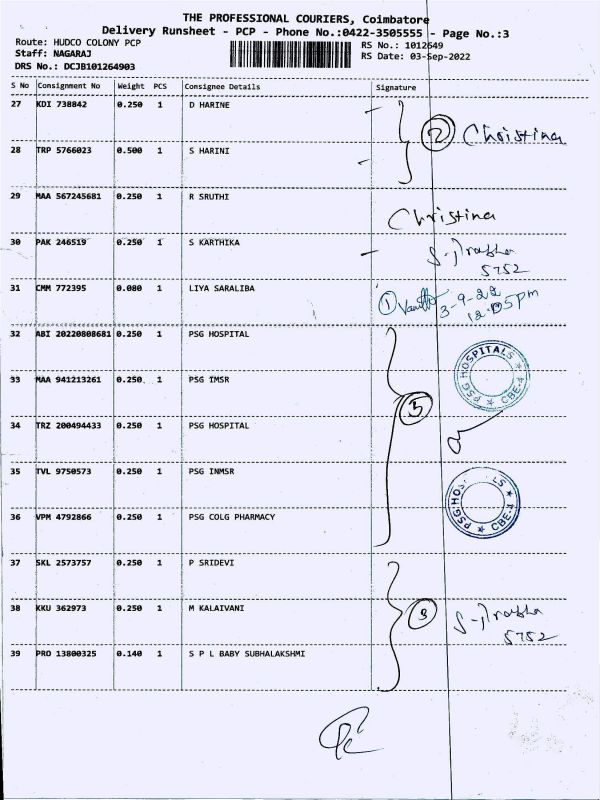 THE PROFESSIONAL COURIERS, Coimbatore
Delivery Runsheet - PCP - Phone No.:0422-3505555 - Page No.:3
Route: HUDCO COLONY PCP
Staff: NAGARAJ
DRS No.: DCJB101264903
RS No.: 1012649
RS Date: 03-Sep-2022
S No Consignment No Weight PCS Consignee Details Signature
27 KDI 738842 0.250 1 D HARINE
2 Christina
28 TRP 5766023 0.500 1 S HARINI
29 MAA 567245681 0.250 1 R SRUTHI
Christina
30 PAK 246519 0.250 1 S KARTHIKA
5752
31 CMM 772395 0.080 1 LIYA SARALIBA
1 3-9-22
12.05pm
32 ABI 20220808681 0.250 1 PSG HOSPITAL
PSG HOSPITALS ★ CBE-4 ★
33 MAA 941213261 0.250 1 PSG IMSR
5
34 TRZ 200494433 0.250 1 PSG HOSPITAL
35 TVL 9750573 0.250 1 PSG INMSR
PSG HOS LS ★ CBE-4 ★
36 VPM 4792866 0.250 1 PSG COLG PHARMACY
37 SKL 2573757 0.250 1 P SRIDEVI
38 KKU 362973 0.250 1 M KALAIVANI
5752
39 PRO 13800325 0.140 1 S P L BABY SUBHALAKSHMI